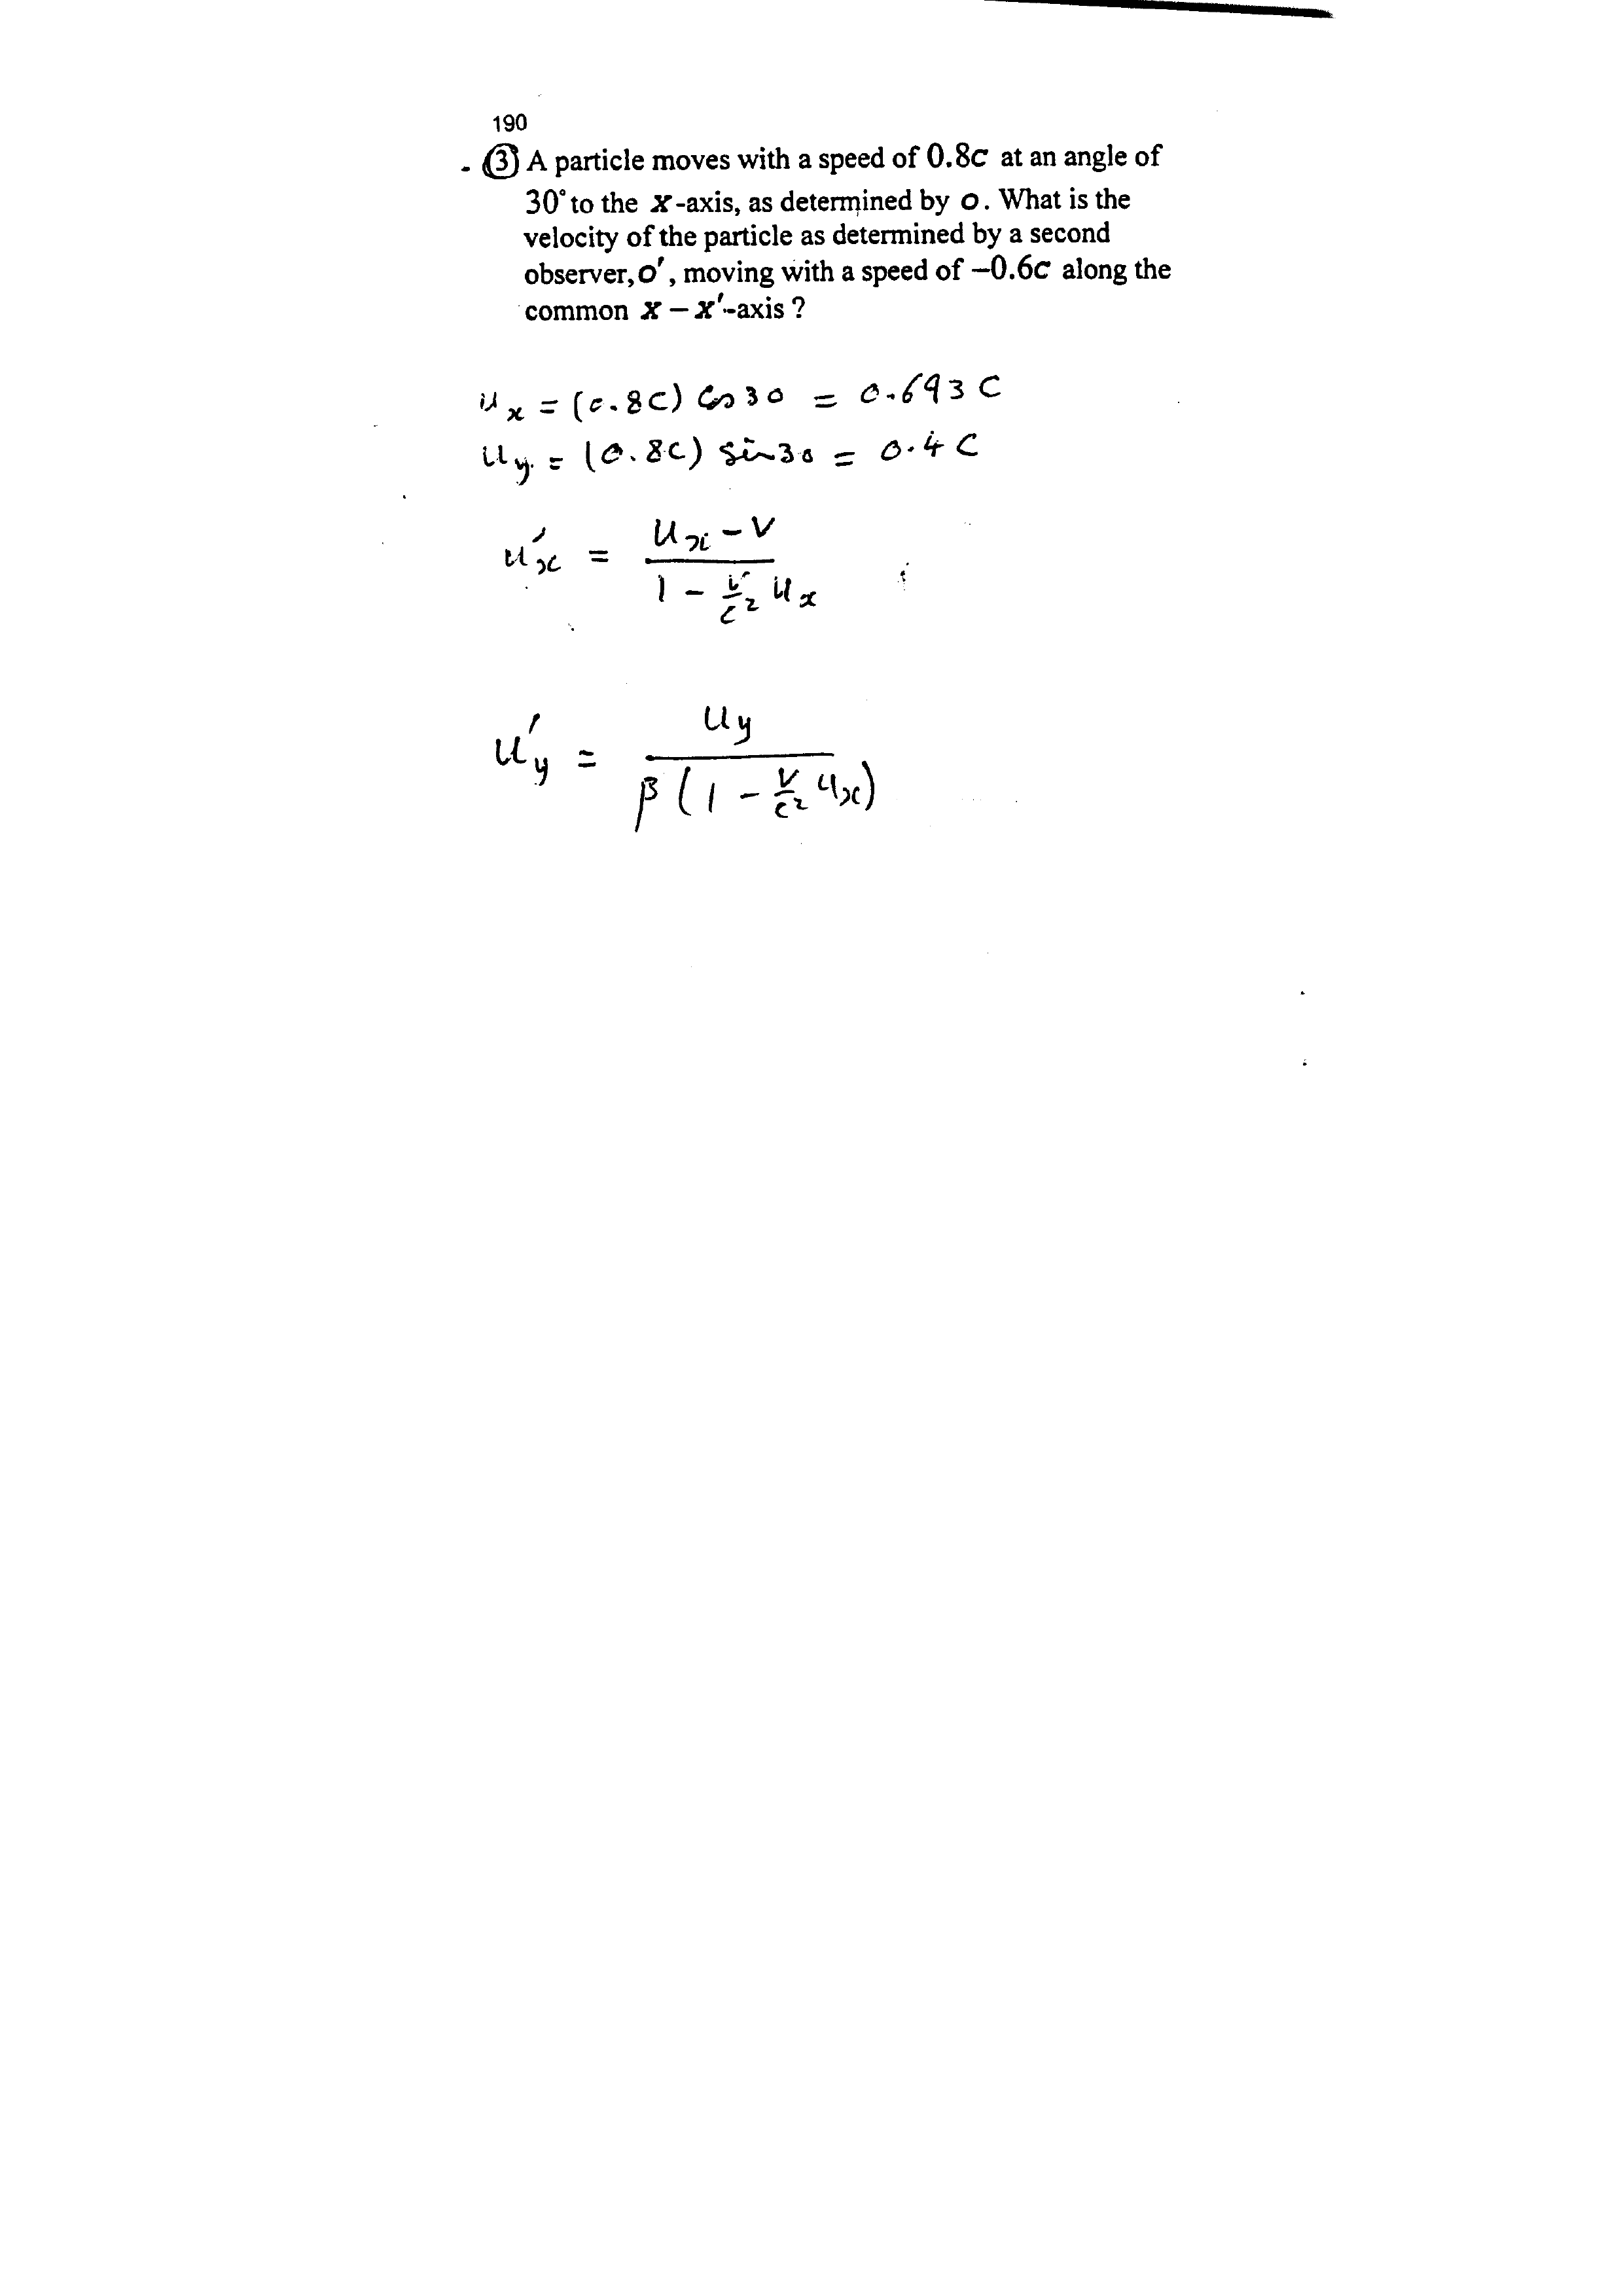 190
③ A particle moves with a speed of 0.8c at an angle of
30° to the x-axis, as determined by o. What is the
velocity of the particle as determined by a second
observer, o', moving with a speed of −0.6c along the
common x − x'-axis ?
u_x = (0.8C) Cos 30 = 0.693 C
u_y = (0.8C) sin 30 = 0.4 C
u'_x = (u_x − v) / (1 − (v/c²) u_x)
u'_y = u_y / (β (1 − (v/c²) u_x))